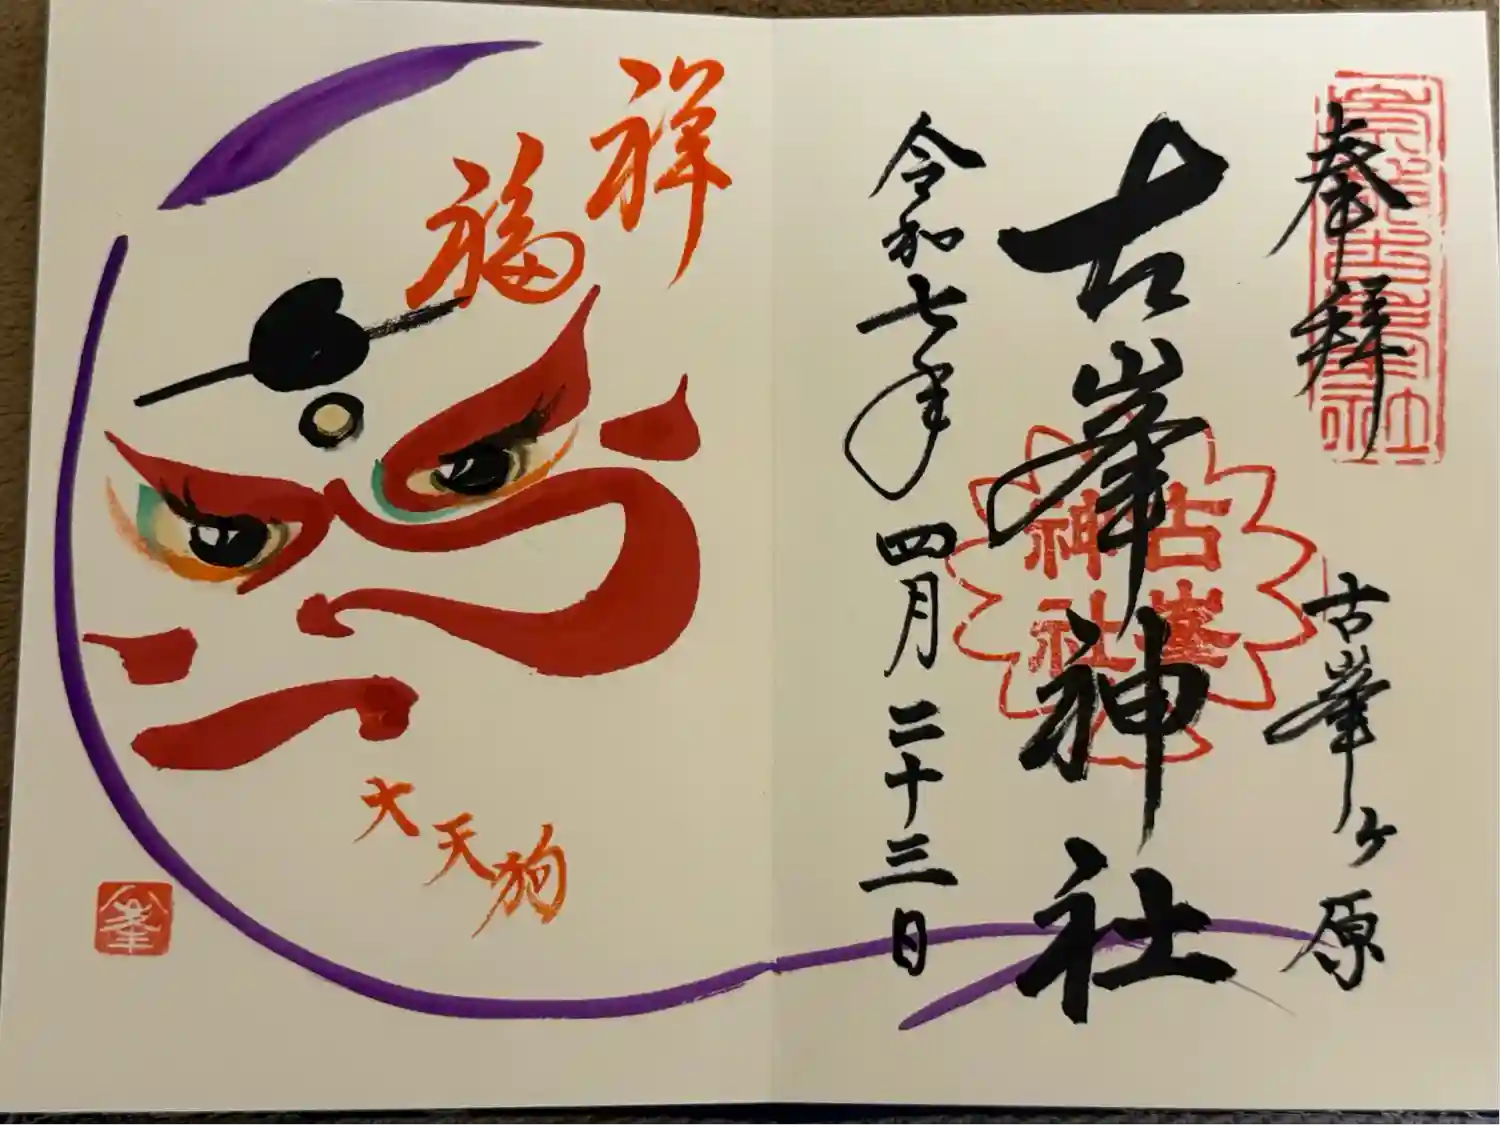 奉拝
古峯ヶ原
古峯神社
古峯神社
令和七年四月二十三日
祥福
大天狗
峯